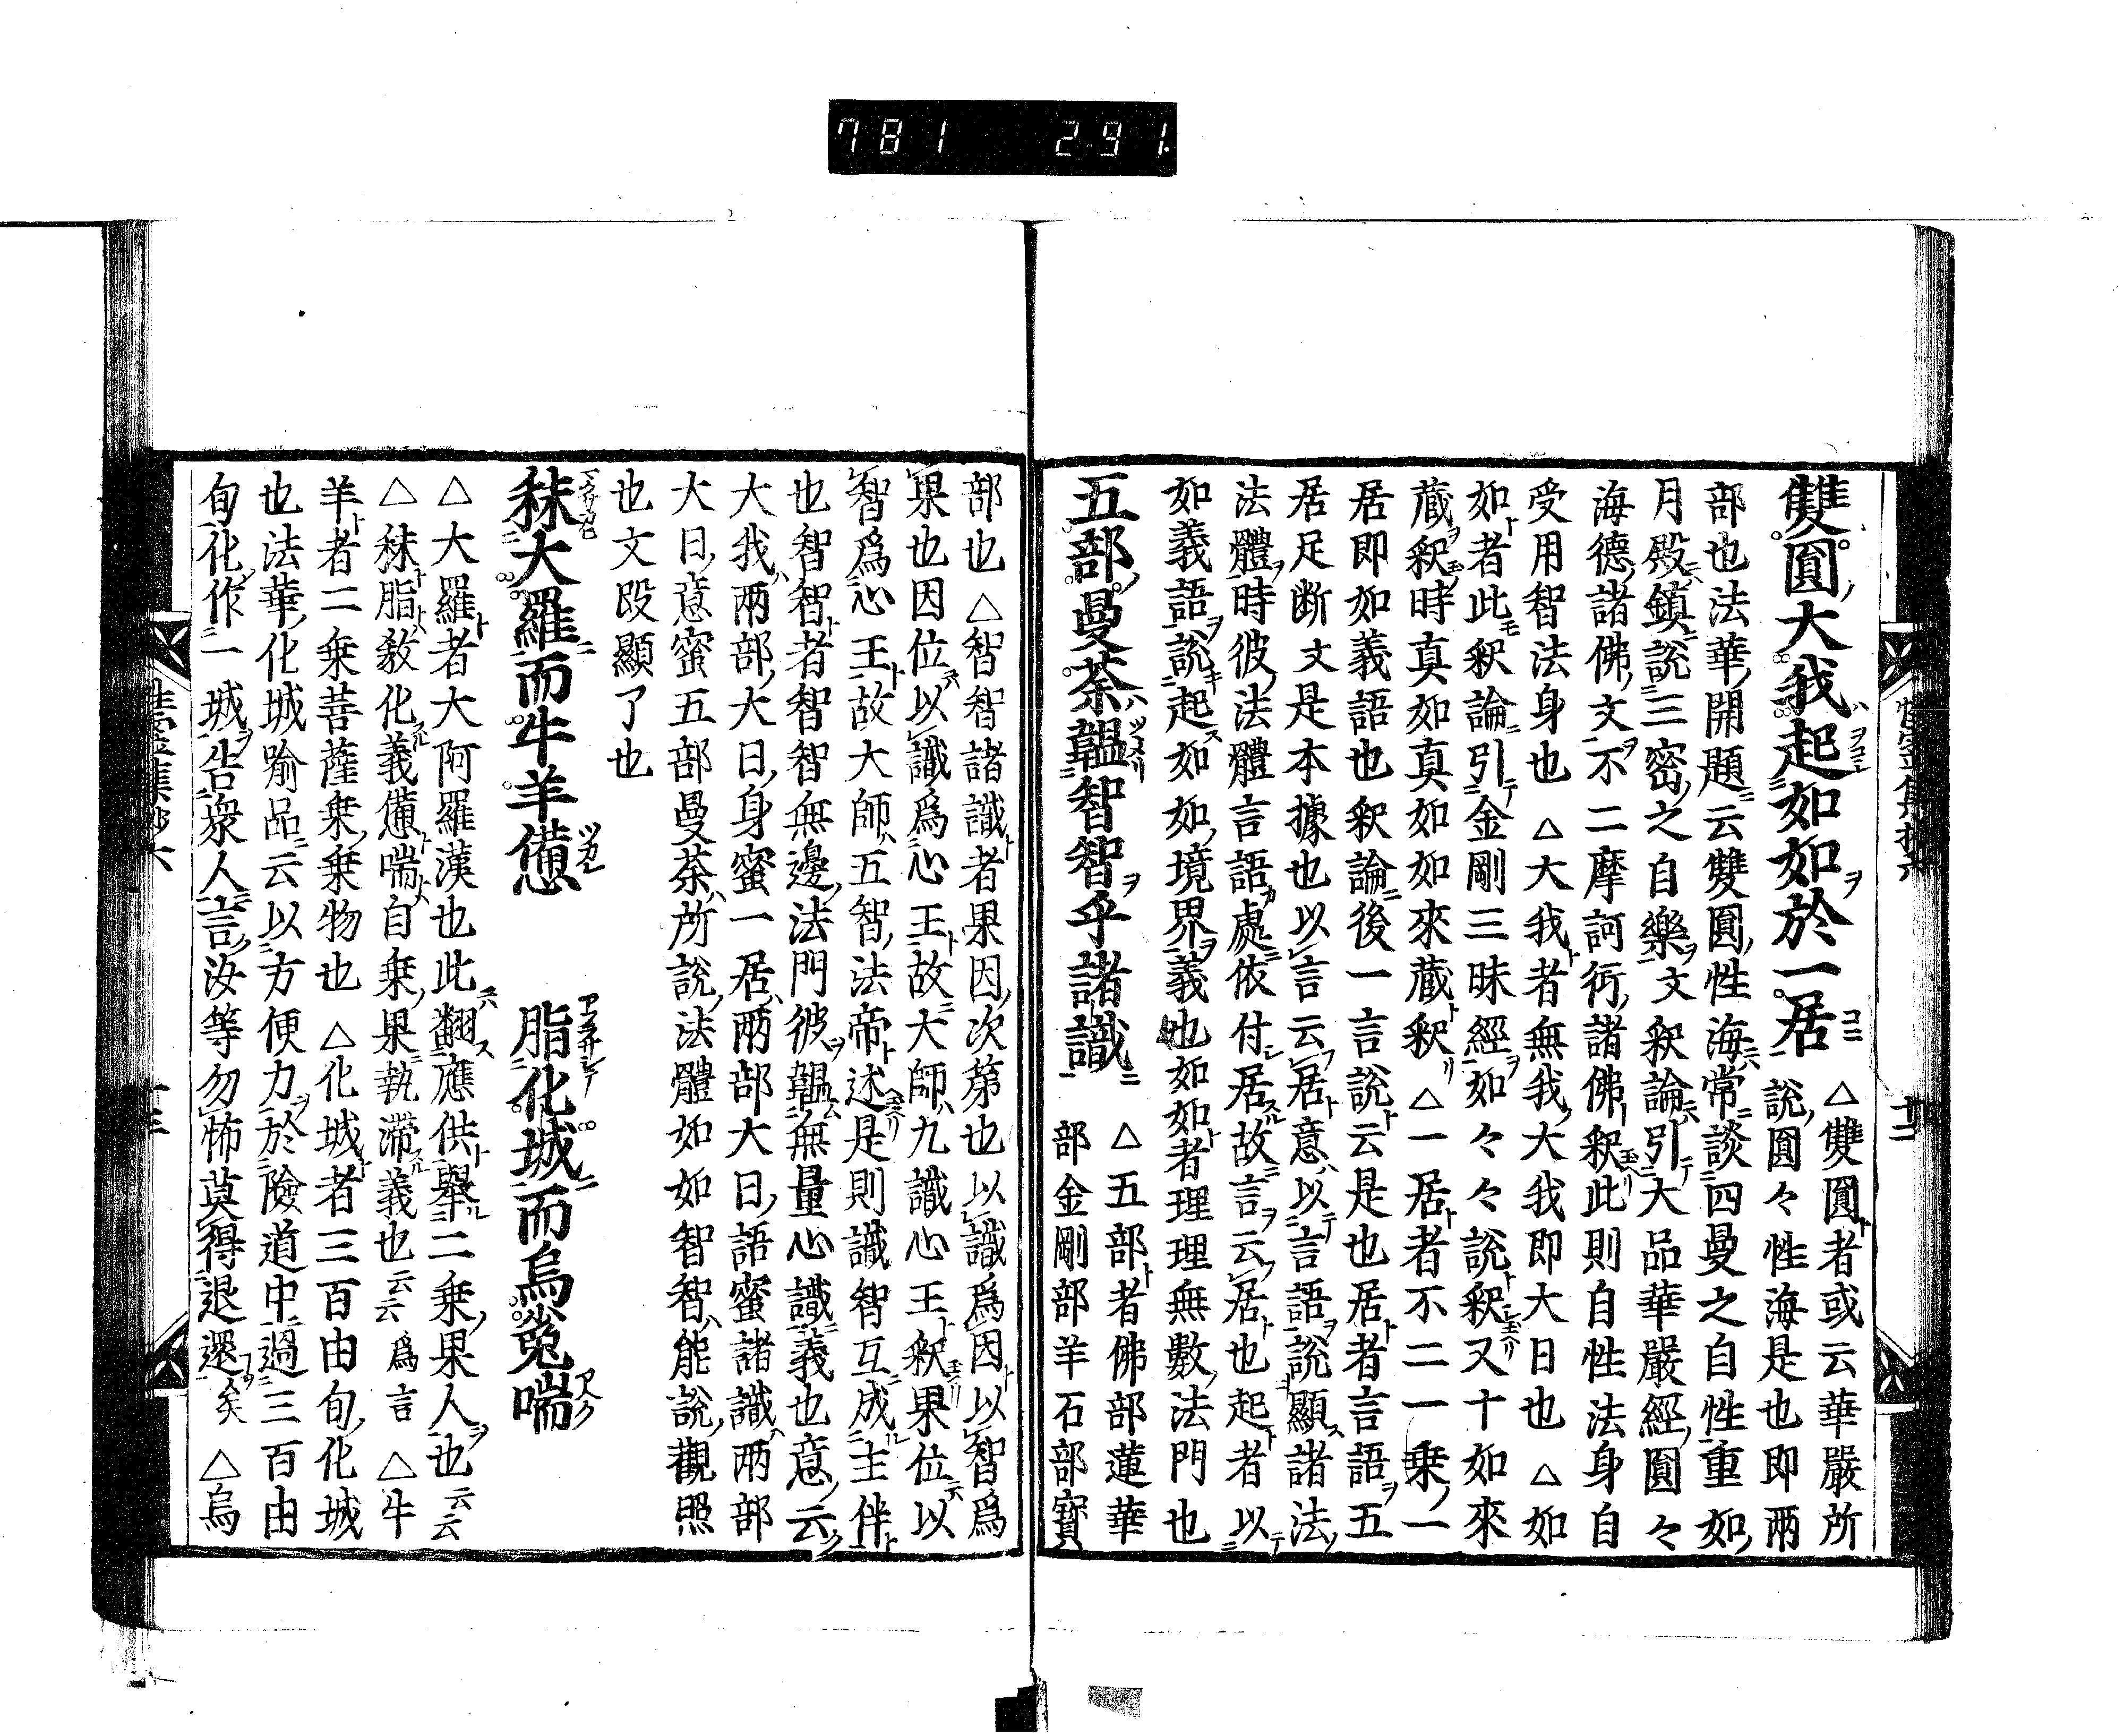 781 291
雙圓大我起如如於一居 △雙圓者或云華嚴所
說圓々性海是也即兩
部也法華開題云雙圓性海常談四曼之自性重如
月殿鎮說三密之自樂文釈論引大品華嚴經圓々
海德諸佛文不二摩訶衍諸佛釈此則自性法身自
受用智法身也 △大我者無我大我即大日也 △如
如者此釈論引金剛三昧經如々々說釈又十如來
蔵釈時真如真如如來蔵釈 △一居者不二一乗一
居即如義語也釈論後一言說云是也居者言語五
居足断文是本據也以言云居意以言語說顯諸法
法體時彼法體言語處依付居故言云居也起者以
如義語說起如如境界義也如如者理理無數法門也
五部曼荼韞智智乎諸識 △五部者佛部蓮華
部金剛部羊石部寳
部也 △智智諸識者果因次第也以識爲因以智爲
果也因位以識爲心王故大師九識心王釈果位以
智爲心王故大師五智法帝述是則識智互成主伴
也智智者智智無邊法門彼韞無量心識義也意云
大我兩部大日身蜜一居兩部大日語蜜諸識兩部
大日意蜜五部曼荼所說法體如如智智能說觀照
也文段顯了也
秣大羅而牛羊憊 脂化城而烏㝹喘
△大羅者大阿羅漢也此翻應供擧二乗果人也云云
△秣脂敎化義憊喘自乗果執滞義也云云爲言 △牛
羊者二乗菩薩乗乗物也 △化城者三百由旬化城
也法華化城喻品云以方便力於險道中過三百由
旬化作一城告衆人言汝等勿怖莫得退還矣 △烏